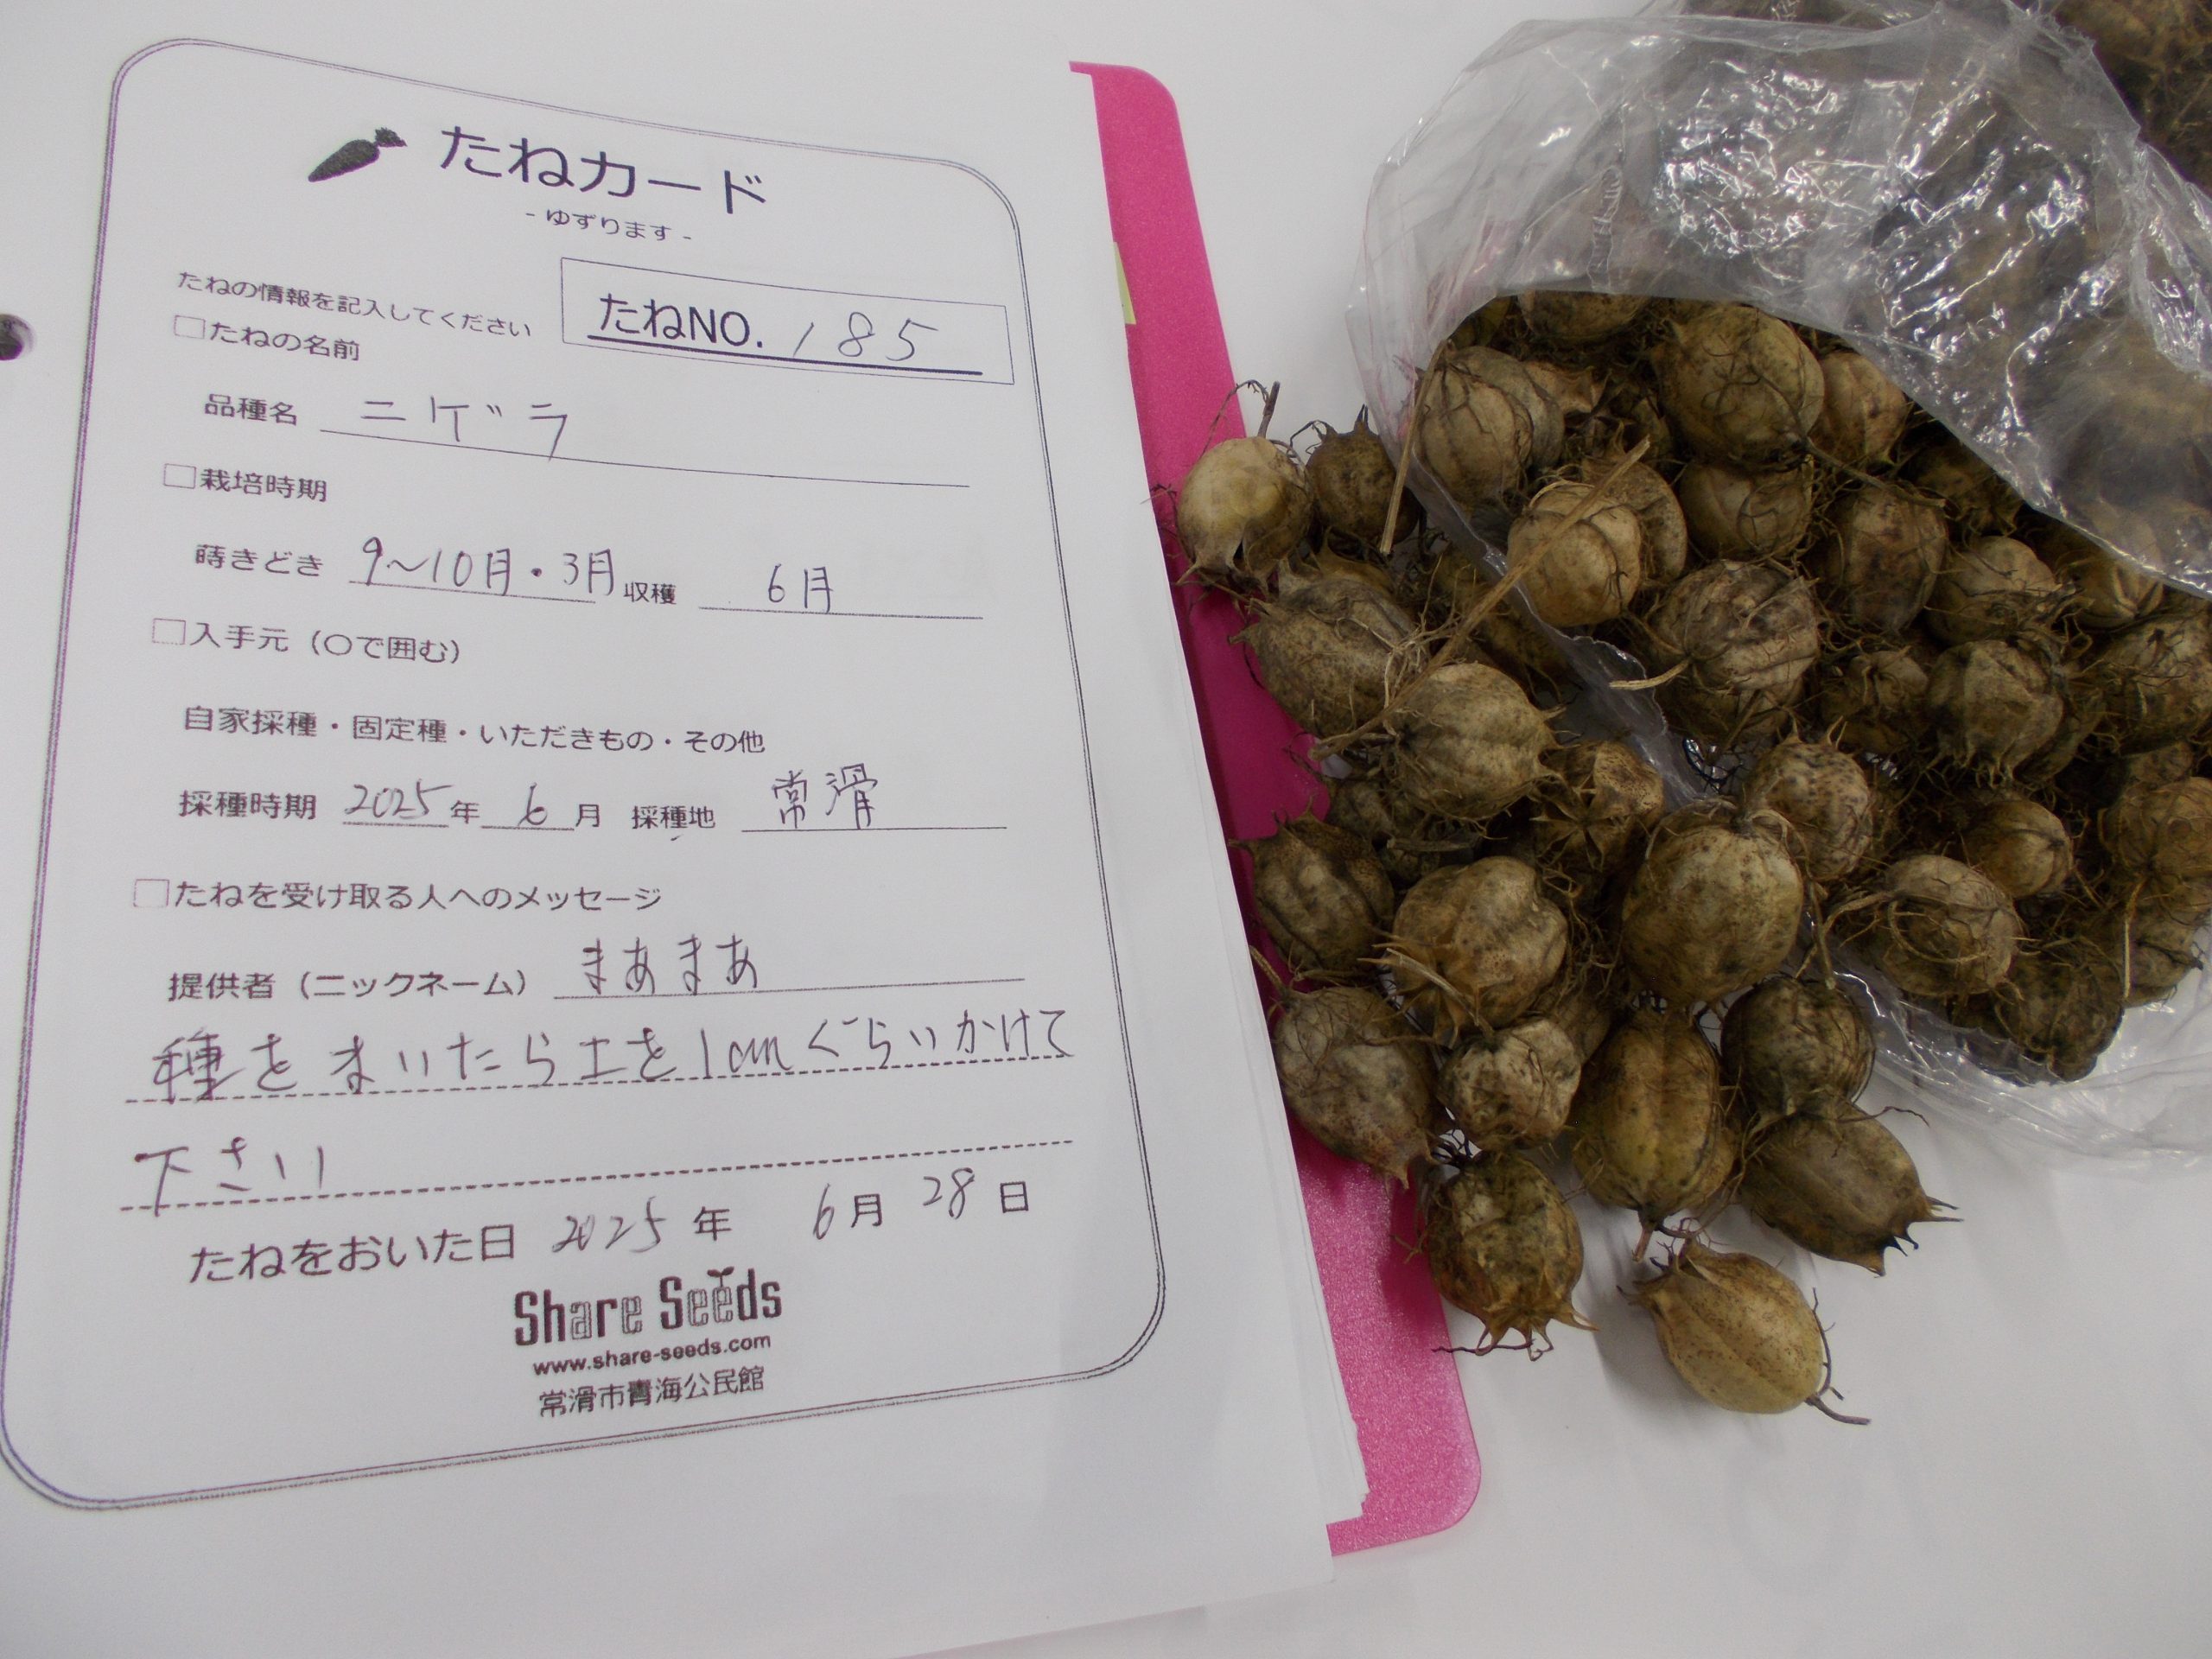 たねカード
- ゆずります -
たねの情報を記入してください
たねNO. 185
□たねの名前
品種名 ニゲラ
□栽培時期
蒔きどき 9〜10月・3月 収穫 6月
□入手元（〇で囲む）
自家採種・固定種・いただきもの・その他
採種時期 2025年 6月 採種地 常滑
□たねを受け取る人へのメッセージ
提供者（ニックネーム） まあまあ
種をまいたら土を1cmぐらいかけて
下さい
たねをおいた日 2025年 6月 28日
Share Seeds
www.share-seeds.com
常滑市青海公民館